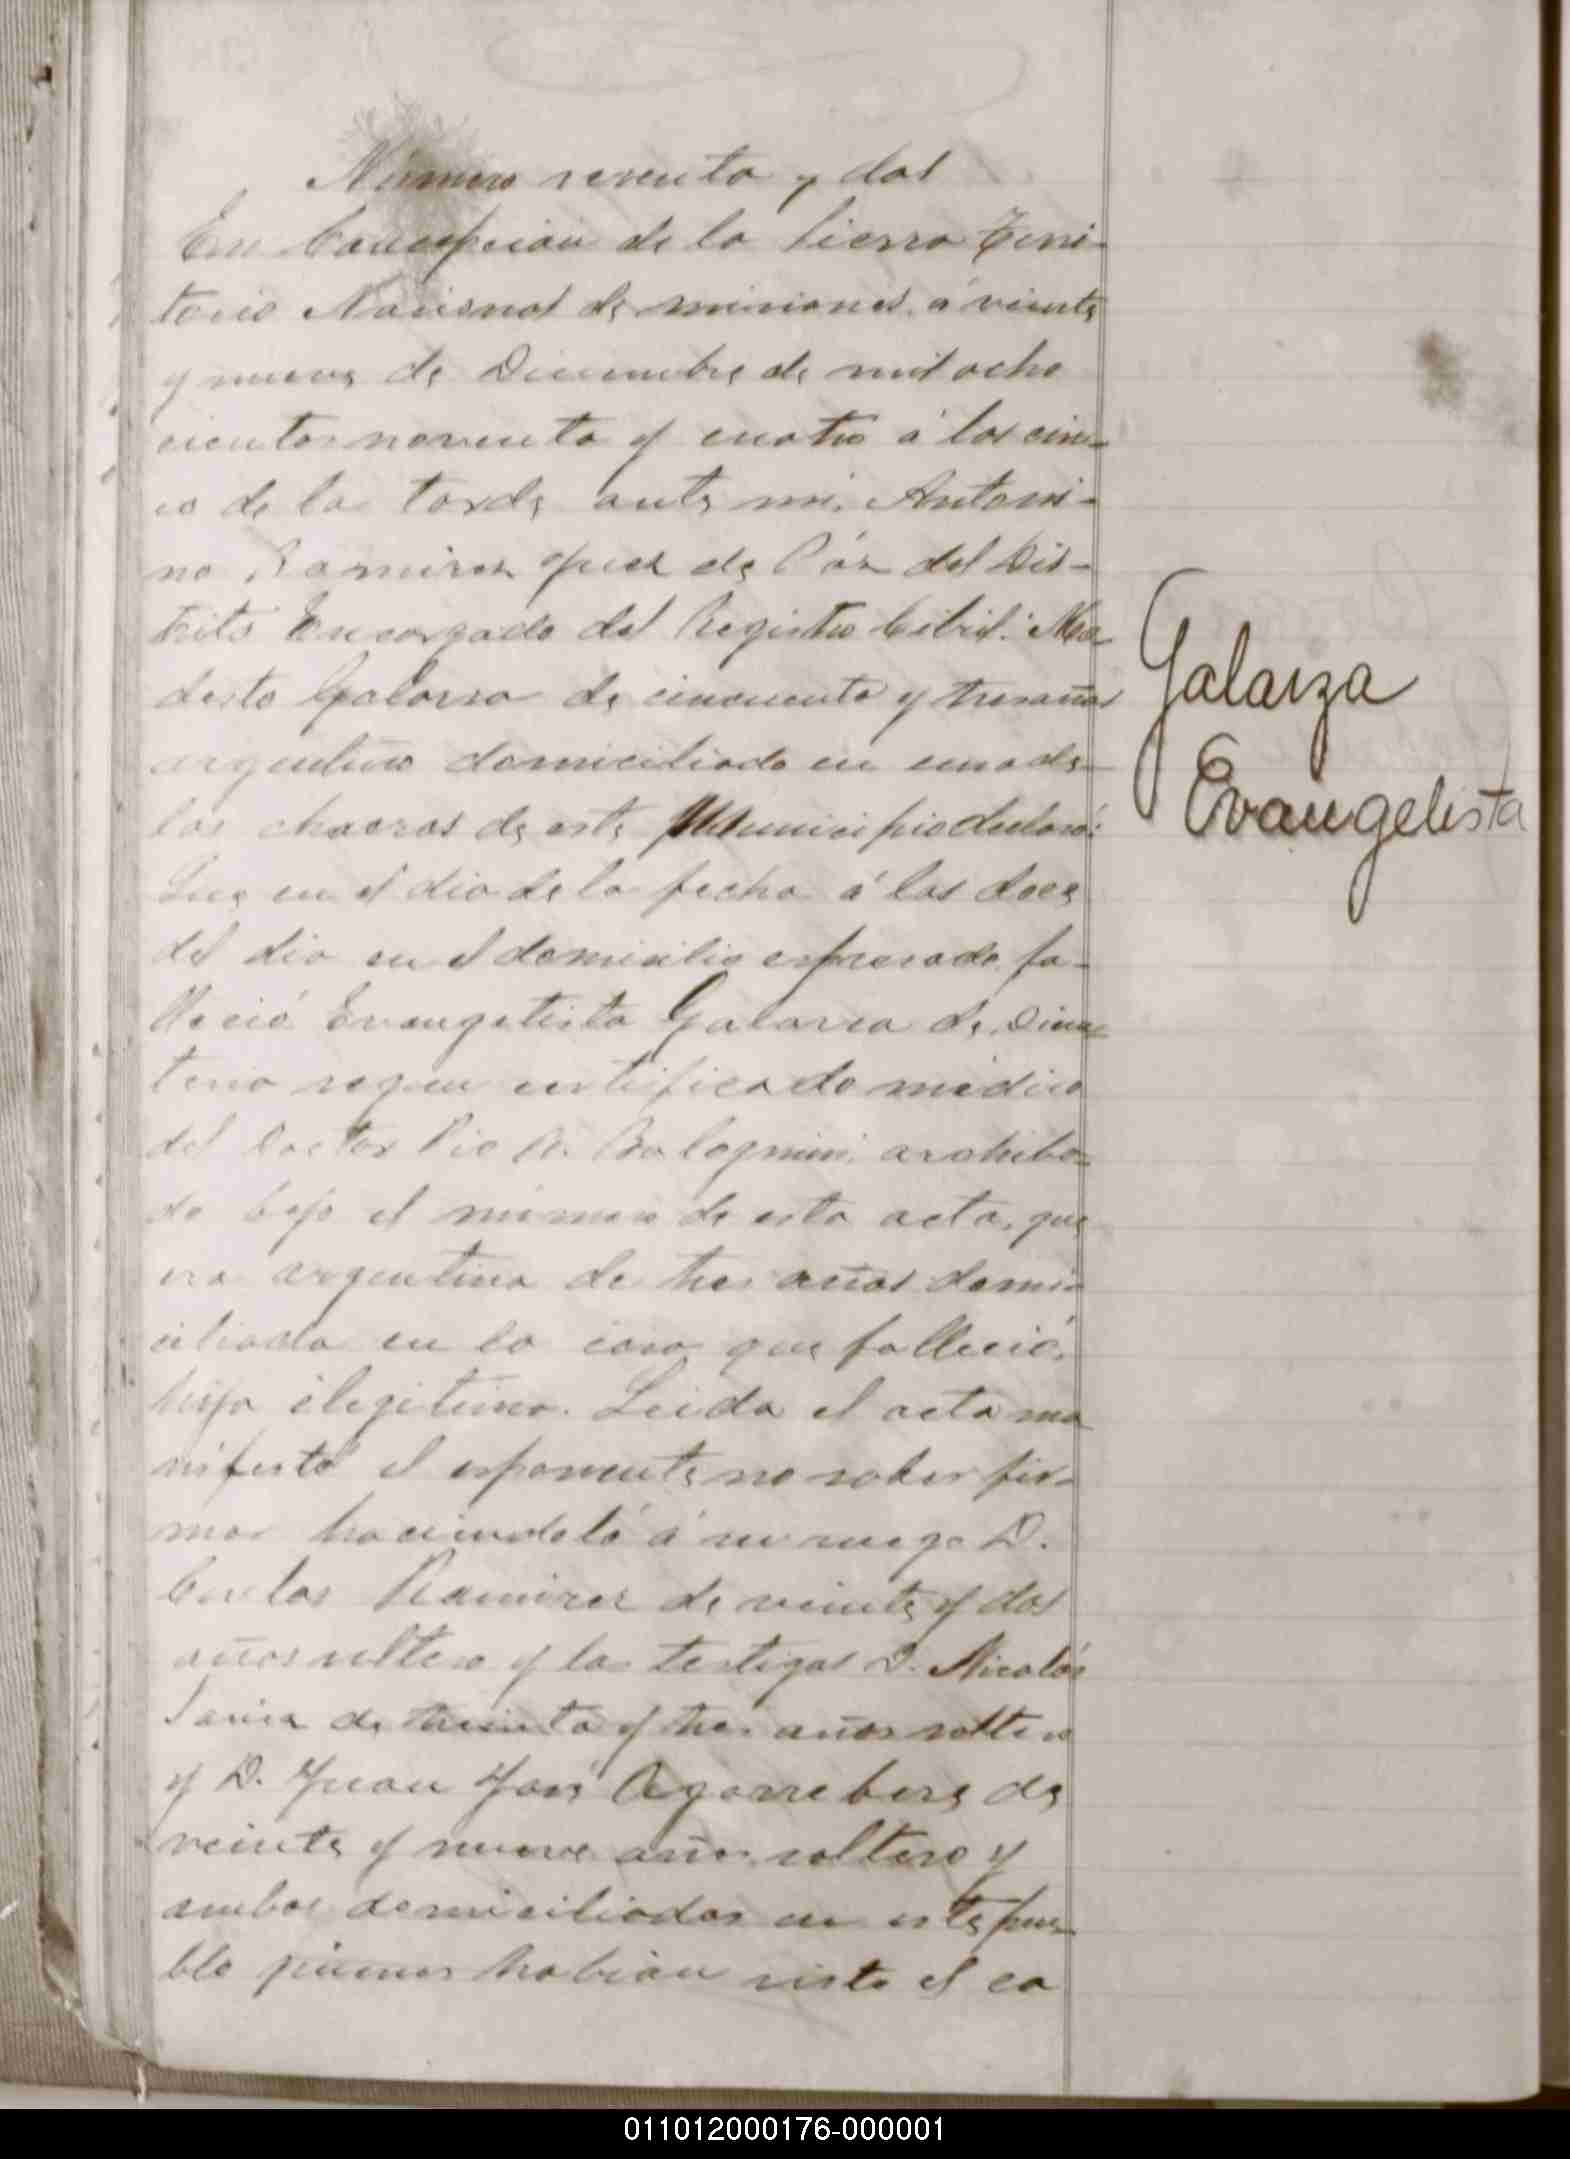 Número sesenta y dos
En Concepcion de la Sierra Terri-
torio Nacional de Misiones, á veinte
y nueve de Diciembre de mil ocho
cientos noventa y cuatro á las cin-
co de la tarde ante mi, Antoni-
no Ramirez Juez de Páz del Dis-
trito Encargado del Registro Cibil: Mo-
desto Galarza de cincuenta y tres años
argentino domiciliado en una de
las chacras de este Municipio declaró:
Que en el dia de la fecha á las doce
del dia en el domicilio espresado fa-
lleció Evangelista Galarza de Dicen-
teria segun certificado médico
del Doctor Pio A. Bolognini, archiba-
do bajo el número de esta acta, que
era argentina de tres años domi-
ciliada en la casa que falleció,
hija ilegitima. Leida el acta ma
nifestó el esponente no saber fir-
mar haciendoló á su ruego D.
Carlos Ramirez de veinte y dos
años soltero y los testigos D. Nicolás
de treinta y tres años soltero
y D. Juan José de
veinte y nueve años soltero y
ambos domiciliados en este pue-
blo quienes habian visto el ca
Galarza
Evangelista
011012000176-000001